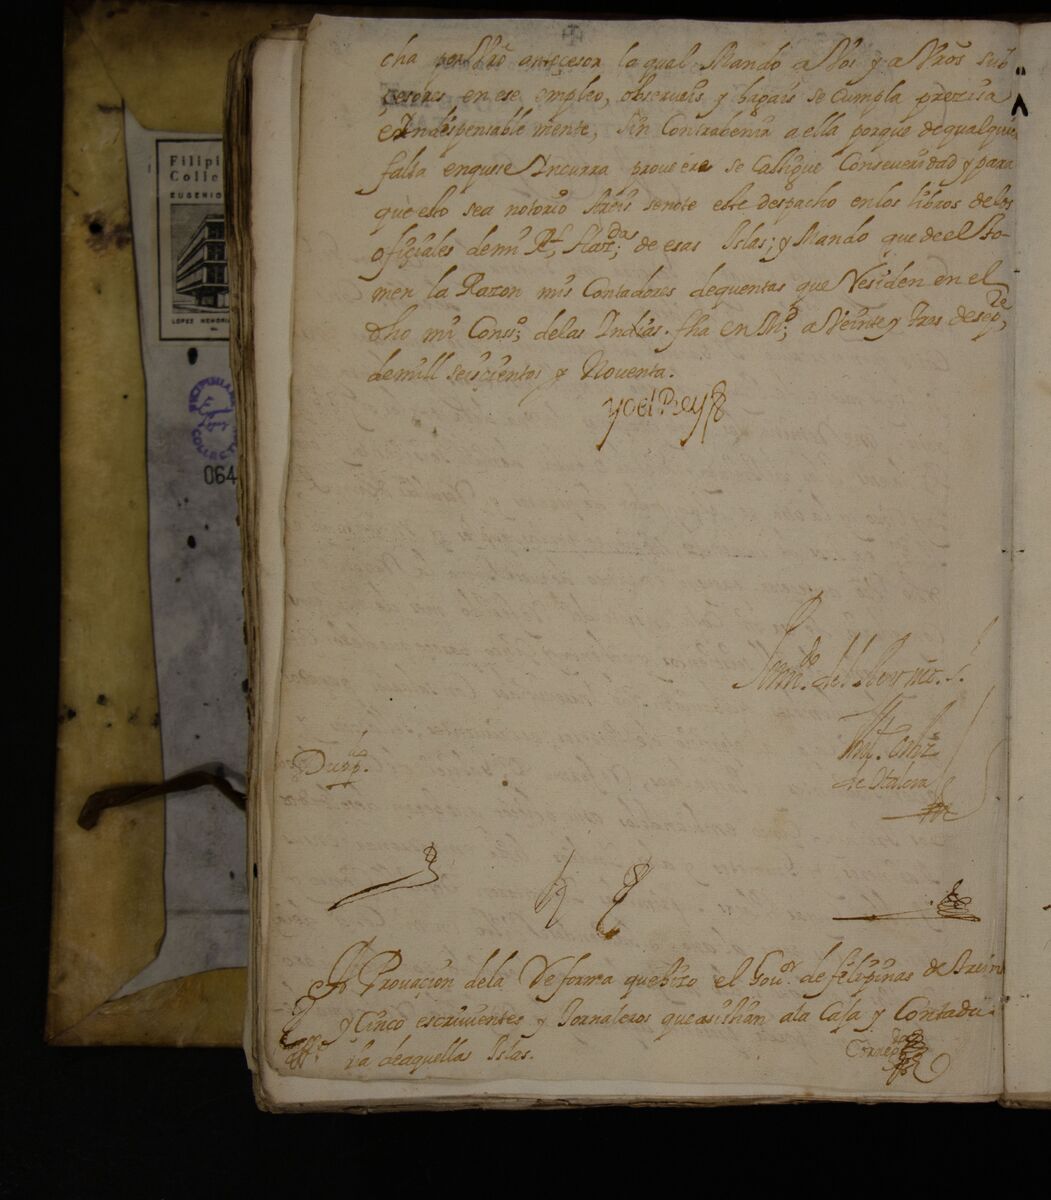 cha por Nrō anteçesor la qual Mando a Vos y a Vrōs Sub
cesores en ese empleo, observeis y hagais se cumpla preçisa
e Yndispensable mente, sin Contrabenir a ella porque de qualquie
falta en que se Yncurra proueere se castigue Conseueridad y para
que esto sea notorio hareis se note este despacho en los libros de los
ofiçiales de mi Rl. Hazda. de esas Islas; y Mando que de el to-
men la Razon mis Contadores de quentas que Residen en el
dho mi Conso. de las Indias. fha en Md. a Veinte y tres de sepre
de mill seiscientos y Noventa.
yo el Rey
Duppda.
Aprovaçion de la Reforma que hizo el Gouor. de filipinas de treinta
y Cinco escriuientes y Jornaleros que asistian a la Casa y Contadu-
ria de aquellas Islas.
Correda
Filipi
Colle
EUGENIO
LOPEZ MEMORI
FILIPINIANA
COLLECTION
064